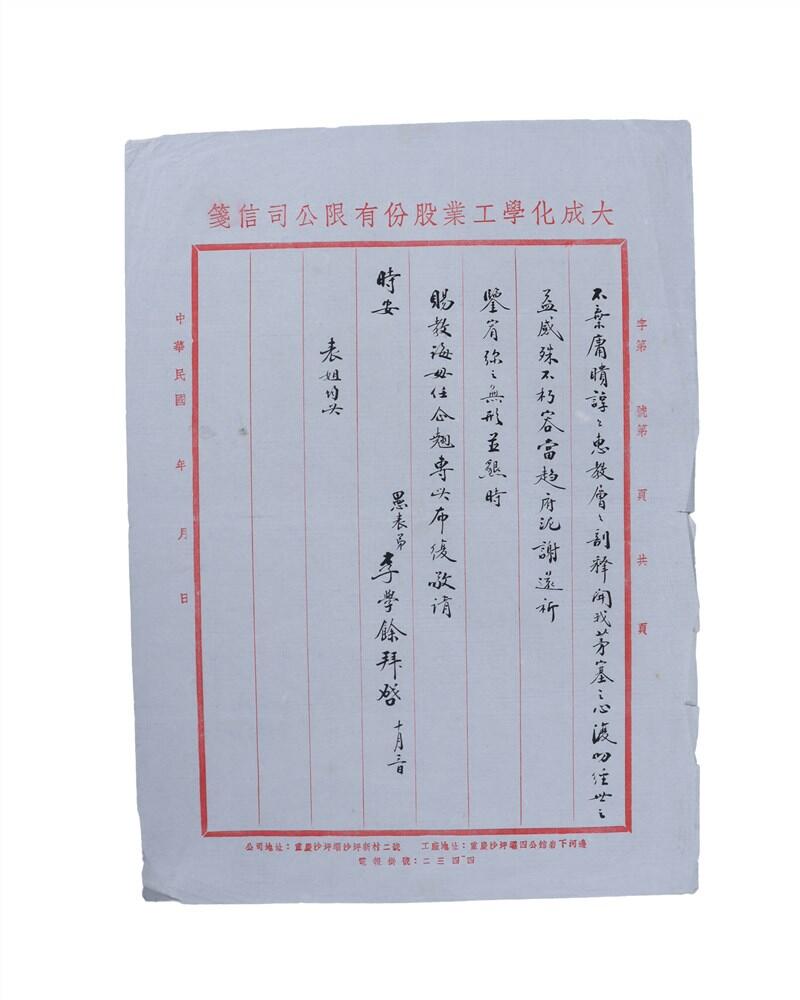 大成化學工業股份有限公司信箋
字第 號第 頁共 頁
不棄庸瞶諄々惠教層々剖釋開我茅塞之心渡四經世之
益感殊不朽容當趨府泥謝還祈
鑒宥弥之無形並懇時
賜教誨毋任企翹專此布復敬请
時安
愚表弟李學餘拜啓 十月三日
表姐均此
中華民國 年 月 日
公司地址：重慶沙坪壩沙坪新村二號 工廠地址：重慶沙坪壩四公館岩下河邊
電報掛號：二三四四